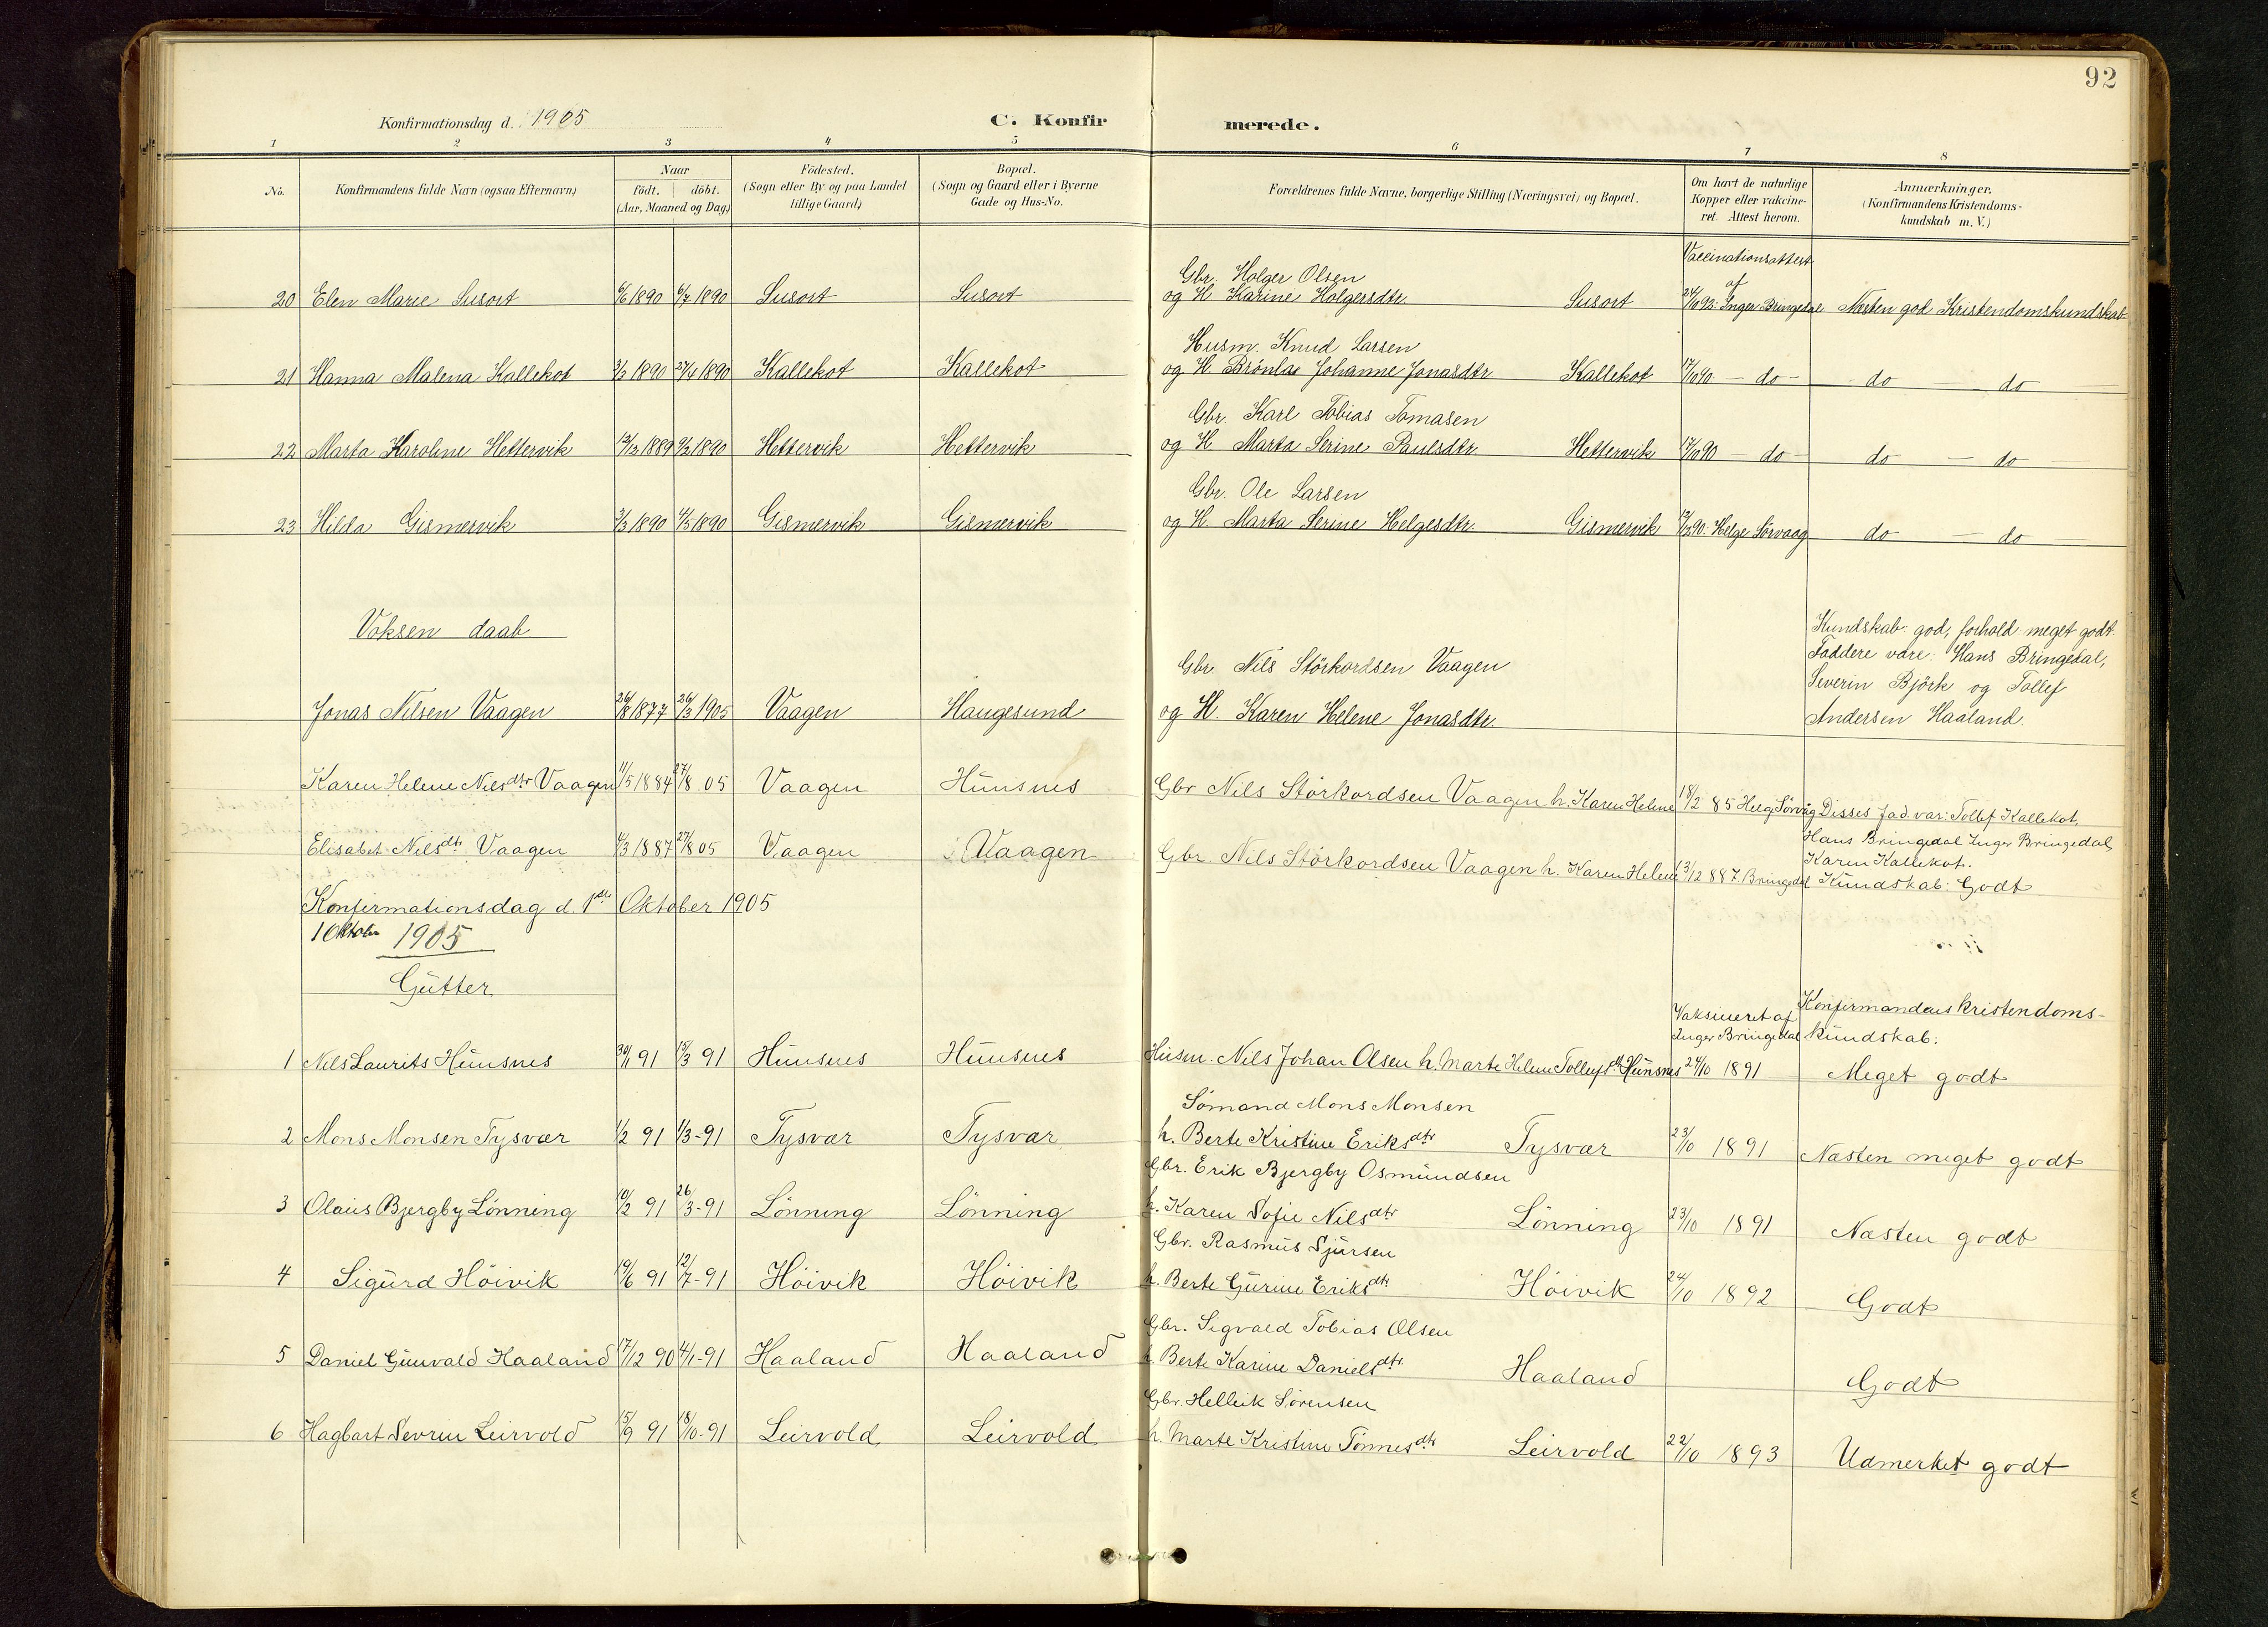 92
Konfirmationsdag d. 1905
C. Konfirmerede.
1 2 3 4 5 6 7 8
No. Konfirmandens fulde Navn (ogsaa Efternavn) Naar født. døbt. (Aar, Maaned og Dag) Födested. (Sogn eller By og paa Landet tillige Gaard) Bopæl. (Sogn og Gaard eller i Byerne Gade og Hus-No. Forældrenes fulde Navne, borgerlige Stilling (Næringsvei) og Bopæl. Om havt de naturlige Kopper eller vakcineret. Attest herom. Anmærkninger. (Konfirmandens Kristendomskundskab m. V.)
Vaccinationsattest af
Gbr. Holger Olsen
20 Elen Marie Susort 6/6 1890 6/7 1890 Susort Susort og H. Karine Holgersdtr. Susort 24/10 92: Inger Bringedal Næsten god Kristendomskundskab
Husm. Knud Larsen
21 Hanna Malena Kallekot 3/3 1890 27/4 1890 Kallekot Kallekot og H. Brønlar Johanne Jonasdtr Kallekot 17/10 90 - do - do - do
Gbr. Karl Tobias Tomasen
22 Marta Karoline Hettervik 13/12 1889 9/2 1890 Hettervik Hettervik og H. Marta Serine Paulsdtr. Hettervik 17/10 90 - do - do - do
Gbr. Ole Larsen
23 Hilda Gismervik 3/3 1890 4/5 1890 Gismervik Gismervik og H. Marta Serine Helgesdtr. Gismervik 90. Helge Sörvaag do - do
Voksen daab
Kundskab: god, forhold meget godt.
Faddere vare: Hans Bringedal,
Gbr. Nils Störkordsen Vaagen
Severin Björk og Tollef
Jonas Nilsen Vaagen 26/8 1877 26/3 1905 Vaagen Haugesund og H. Karen Helene Jonasdtr. Andersen Haaland.
Karen Helene Nilsdtr Vaagen 11/5 1884 27/8 05 Vaagen Hünsnes Gbr Nils Störkordsen Vaagen h. Karen Helene 18/2 85 Helg Sörvåg Disses fad. var: Tollef Kallekot,
Hans Bringedal Inger Bringedal
Karen Kallekot.
Elisabet Nilsdtr Vaagen 4/3 1887 27/8 05 Vaagen Vaagen Gbr. Nils Störkordsen Vaagen h. Karen Helene 13/12 887 Bringedal Kundskab: Godt
Konfirmationsdag d. 1ste Oktober 1905
1 Oktober 1905
Gütter
Vaksineret af Inger Bringedal
Konfirmandens kristendoms-
kundskab:
1 Nils Laurits Hünsnes 30/1 91 15/3 91 Hünsnes Hünsnes Husm. Nils Johan Olsen h. Marte Helene Tollefsdtr Hünsnes 24/10 1891 Meget godt
Sömand Mons Monsen
2 Mons Monsen Tysvær 1/2 91 1/3-91 Tysvær Tysvær h. Berte Kristine Eriksdtr Tysvær 23/10 1891 Næsten meget godt
Gbr. Erik Bjergby Osmündsen
3 Olaüs Bjergby Lönning 10/2 91 26/3-91 Lönning Lönning h. Karen Sofie Nilsdtr Lönning 23/10 1891 Næsten godt
Gbr. Rasmüs Sjürsen
4 Sigürd Höivik 19/6 91 12/7-91 Höivik Höivik h. Berte Gürine Eriksdtr Höivik 24/10 1892 Godt
Gbr. Sigvald Tobias Olsen
5 Daniel Günvald Haaland 17/12 90 4/1-91 Haaland Haaland h. Berte Karine Danielsdtr. Haaland Godt
Gbr. Helleik Sörensen
6 Hagbart Sevrin Leirvold 15/9 91 18/10-91 Leirvold Leirvold h. Marte Kristine Tönnesdtr Leirvold 22/10 1893 Udmerket godt